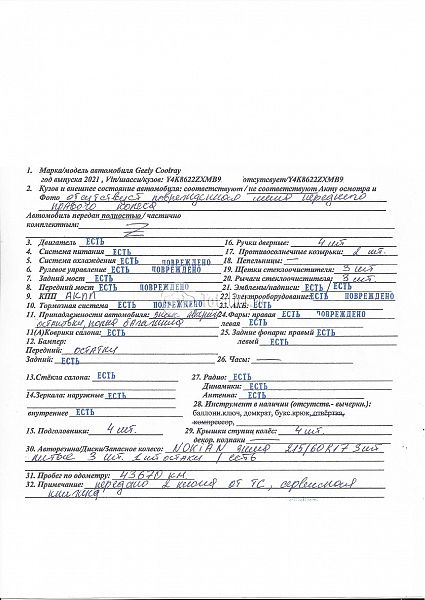 1. Марка/модель автомобиля Geely Coolray
год выпуска 2021 , Vin/шасси/кузов: Y4K8622ZXMB9 отсутсвует/Y4K8622ZXMB9
2. Кузов и внешнее состояние автомобиля: соответствуют / не соответствуют Акту осмотра и
Фото отсутствует поврежденная шина переднего
правого колеса
Автомобиль передан полностью / частично
комплектным: Z
3. Двигатель ЕСТЬ 16. Ручки дверные: 4 шт
4. Система питания ЕСТЬ 17. Противосолнечные козырьки: 2 шт.
5. Система охлаждения ЕСТЬ ПОВРЕЖДЕНО 18. Пепельницы: —
6. Рулевое управление ЕСТЬ ПОВРЕЖДЕНО 19. Щетки стеклоочистителя: 3 шт
7. Задний мост ЕСТЬ 20. Рычаги стеклоочистителя: 3 шт.
8. Передний мост ЕСТЬ ПОВРЕЖДЕНО 21. Эмблемы/надписи: ЕСТЬ / ЕСТЬ
9. КПП АКПП 22. Электрооборудование: ЕСТЬ ПОВРЕЖДЕНО
10. Тормозная система ЕСТЬ ПОВРЕЖДЕНО 23. АКБ: ЕСТЬ
11. Принадлежности автомобиля: знак аварийн 24. Фары: правая ЕСТЬ ПОВРЕЖДЕНО
остановки, полка багажника левая ЕСТЬ
11(А)Коврики салона: ЕСТЬ 25. Задние фонари: правый ЕСТЬ
12. Бампер: левый ЕСТЬ
Передний: остатки
Задний: ЕСТЬ 26. Часы: —
13.Стёкла салона: ЕСТЬ 27. Радио: ЕСТЬ
Динамики: ЕСТЬ
14.Зеркала: наружные ЕСТЬ Антенна: ЕСТЬ
28. Инструмент в наличии (отсутств.- вычерки.):
внутреннее ЕСТЬ баллонн.ключ, домкрат, букс.крюк, отвёртка,
компрессор,
15. Подголовники: 4 шт. 29. Крышки ступиц колёс: 4 шт.
декор. колпаки —
30. Авторезина/Диски/Запасное колесо: NOKIAN шина 215/60 R17 3 шт
литые 3 шт. 1 шт остатки / есть
31. Пробег по одометру: 43670 км.
32. Примечание: передано 2 ключа от ТС, сервисная
книжка